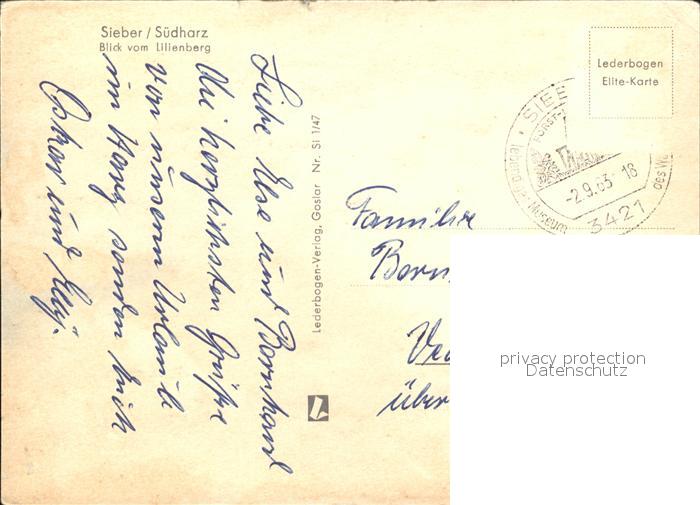 Sieber / Südharz
Blick vom Lilienberg
Liebe Else und Bernhard
die herzlichsten Grüße
von unserm Urlaub
im Harz senden Euch
Oskar und Elly.
Lederbogen-Verlag, Goslar Nr. SI 1/47
Lederbogen
Elite-Karte
SIEB
FORST-
-2.9.63-18
3421
lebendiges Museum des W
Familie
Born
Ve
über
privacy protection
Datenschutz